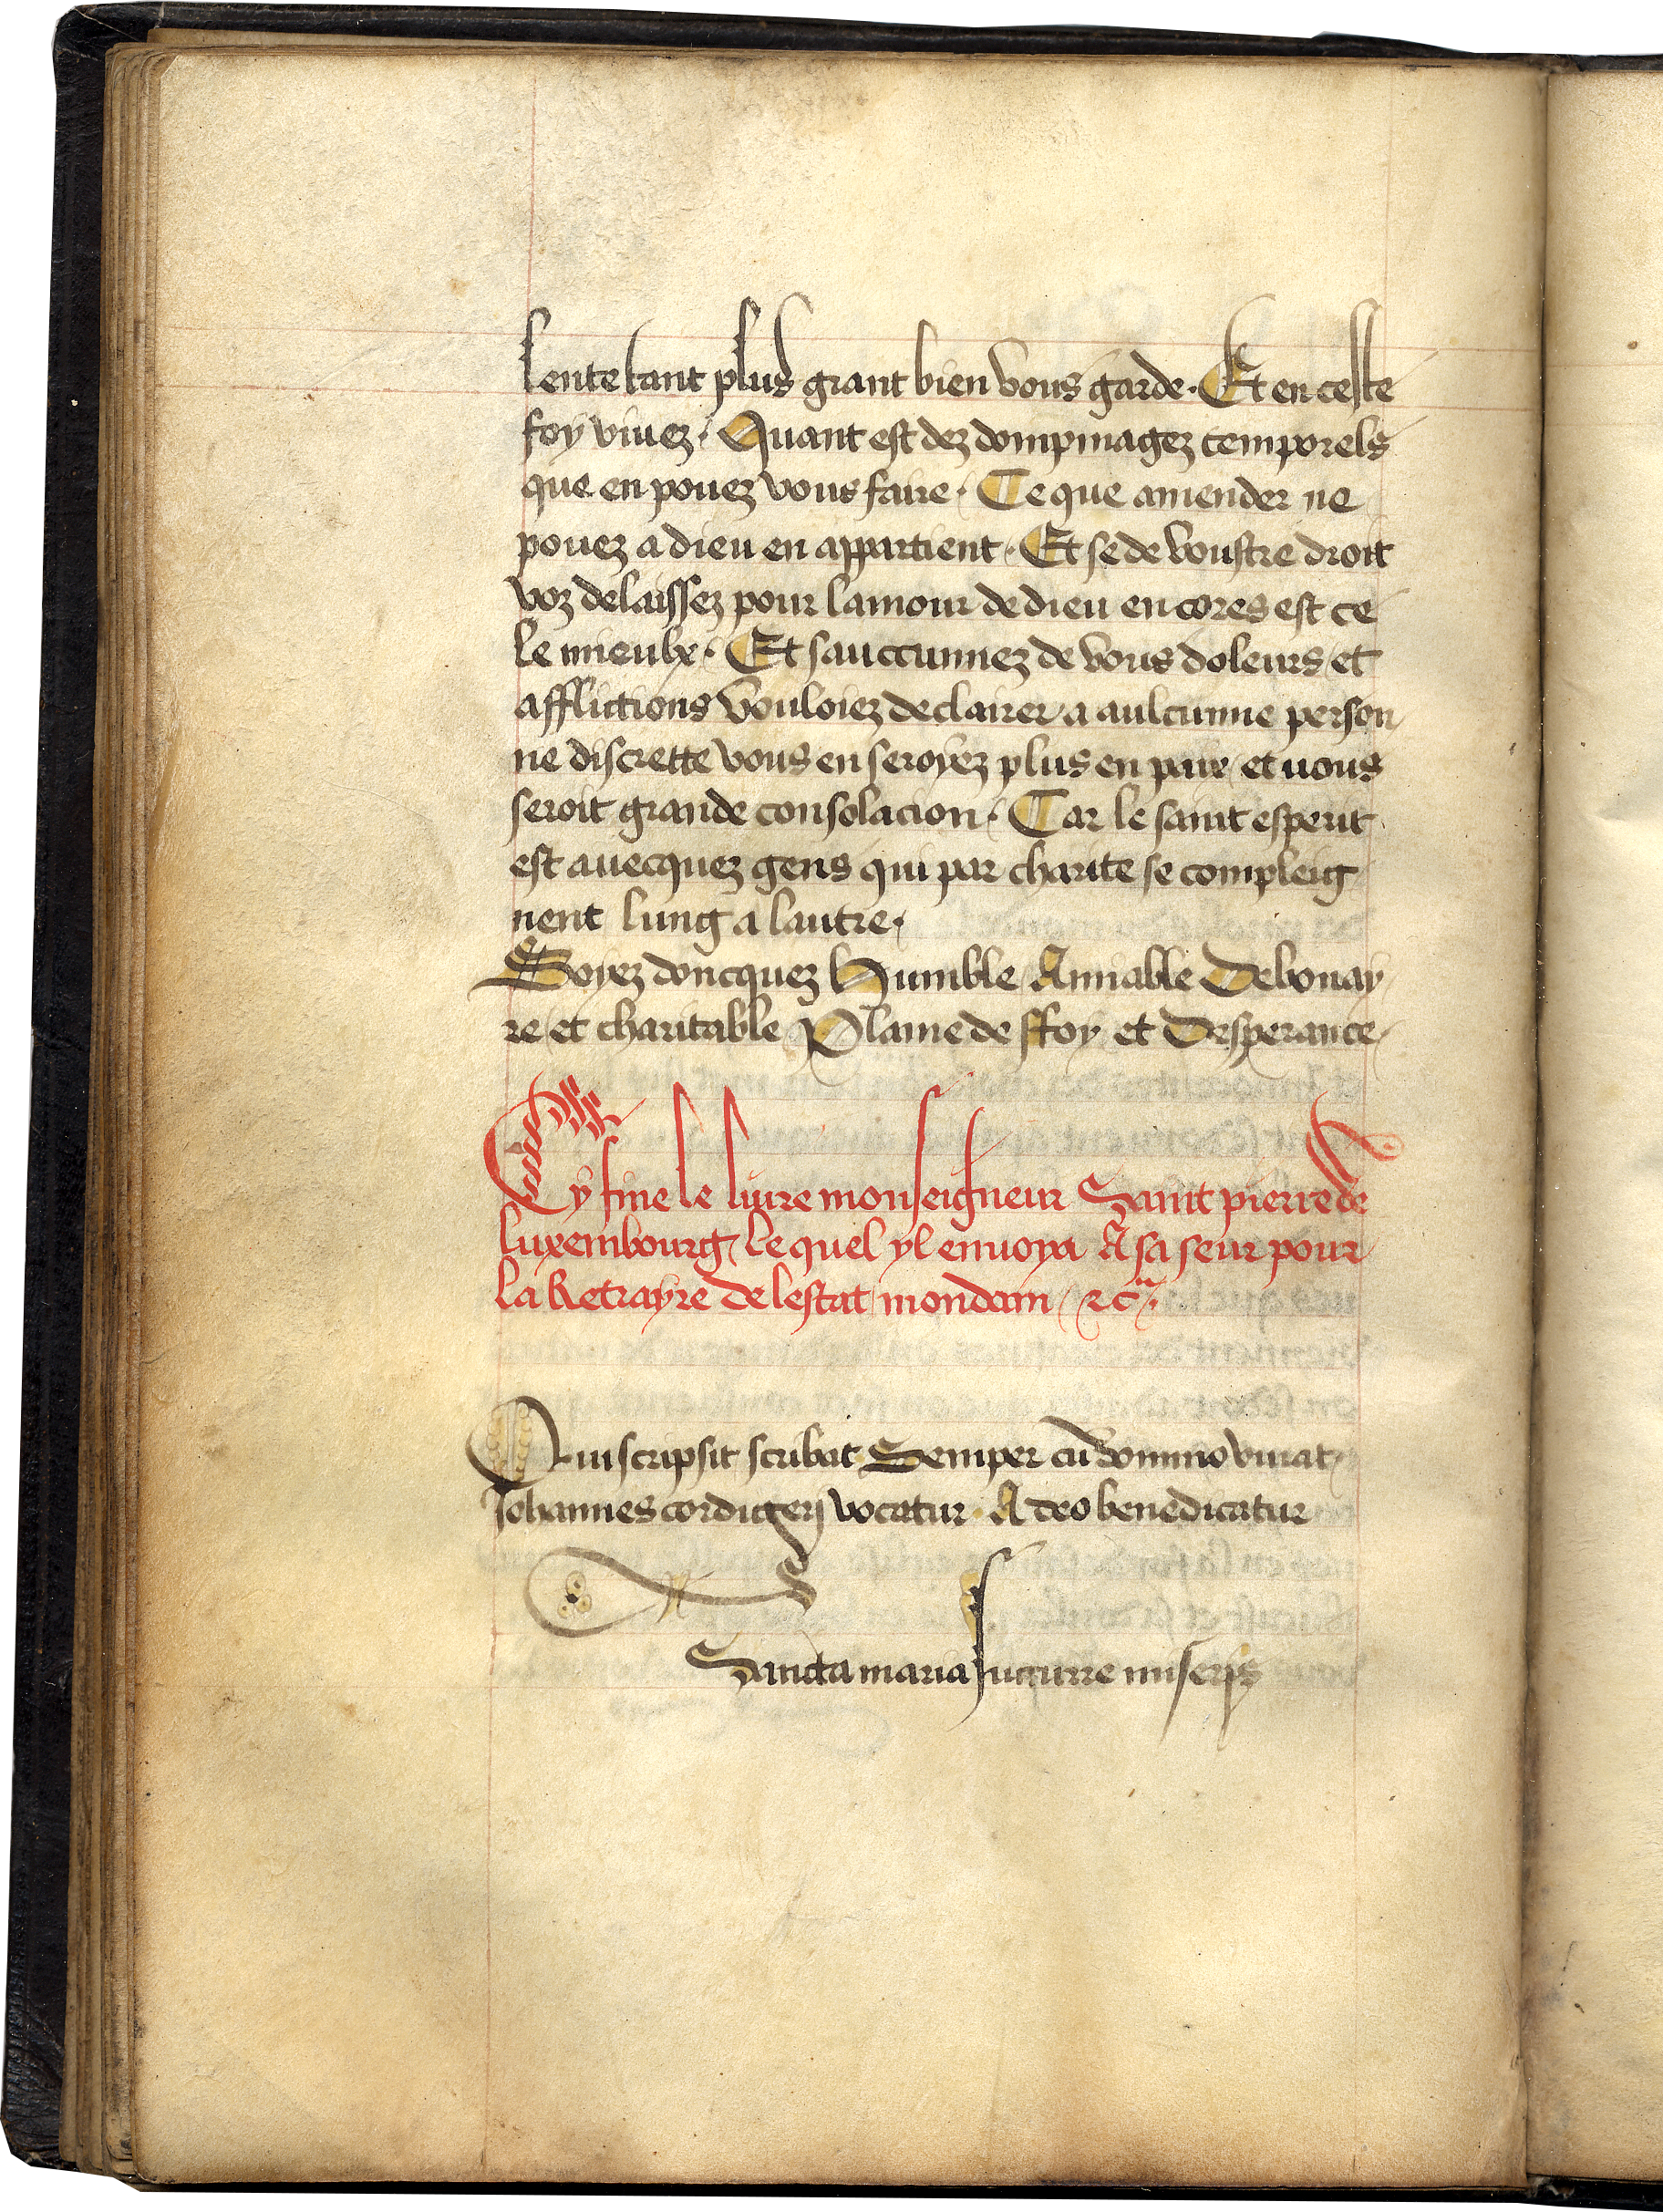 lente tant plus grant bien vous garde. Et en ceste
foy viuez. Quant est dez dompmagez temporels
que en pouez vous faire. Ce que amender ne
pouez a dieu en appartient. Et se de voustre droit
voz delaissez pour lamour de dieu encores est ce
le mieulx. Et sauccunnez de vous doleurs et
afflictions vouloiez declairer a aulcunne person
ne discrette vous en seroyez plus en paix et vous
seroit grande consolacion. Car le saint esperit
est auecquez gens qui par charite se compleig
nent lung a lautre.
Soyez doncquez Humble Amiable Debonay
re et charitable Plaine de ffoy et Desperance
Cy fine le liure monseigneur Saint pierre de
luxembourg lequel yl enuoya A sa seur pour
la Retrayre de lestat mondain &c.
Qui scripsit scribat Semper cū domino viuat
Johannes cordigerij vocatur A deo benedicatur
Sancta maria succurre miserijs